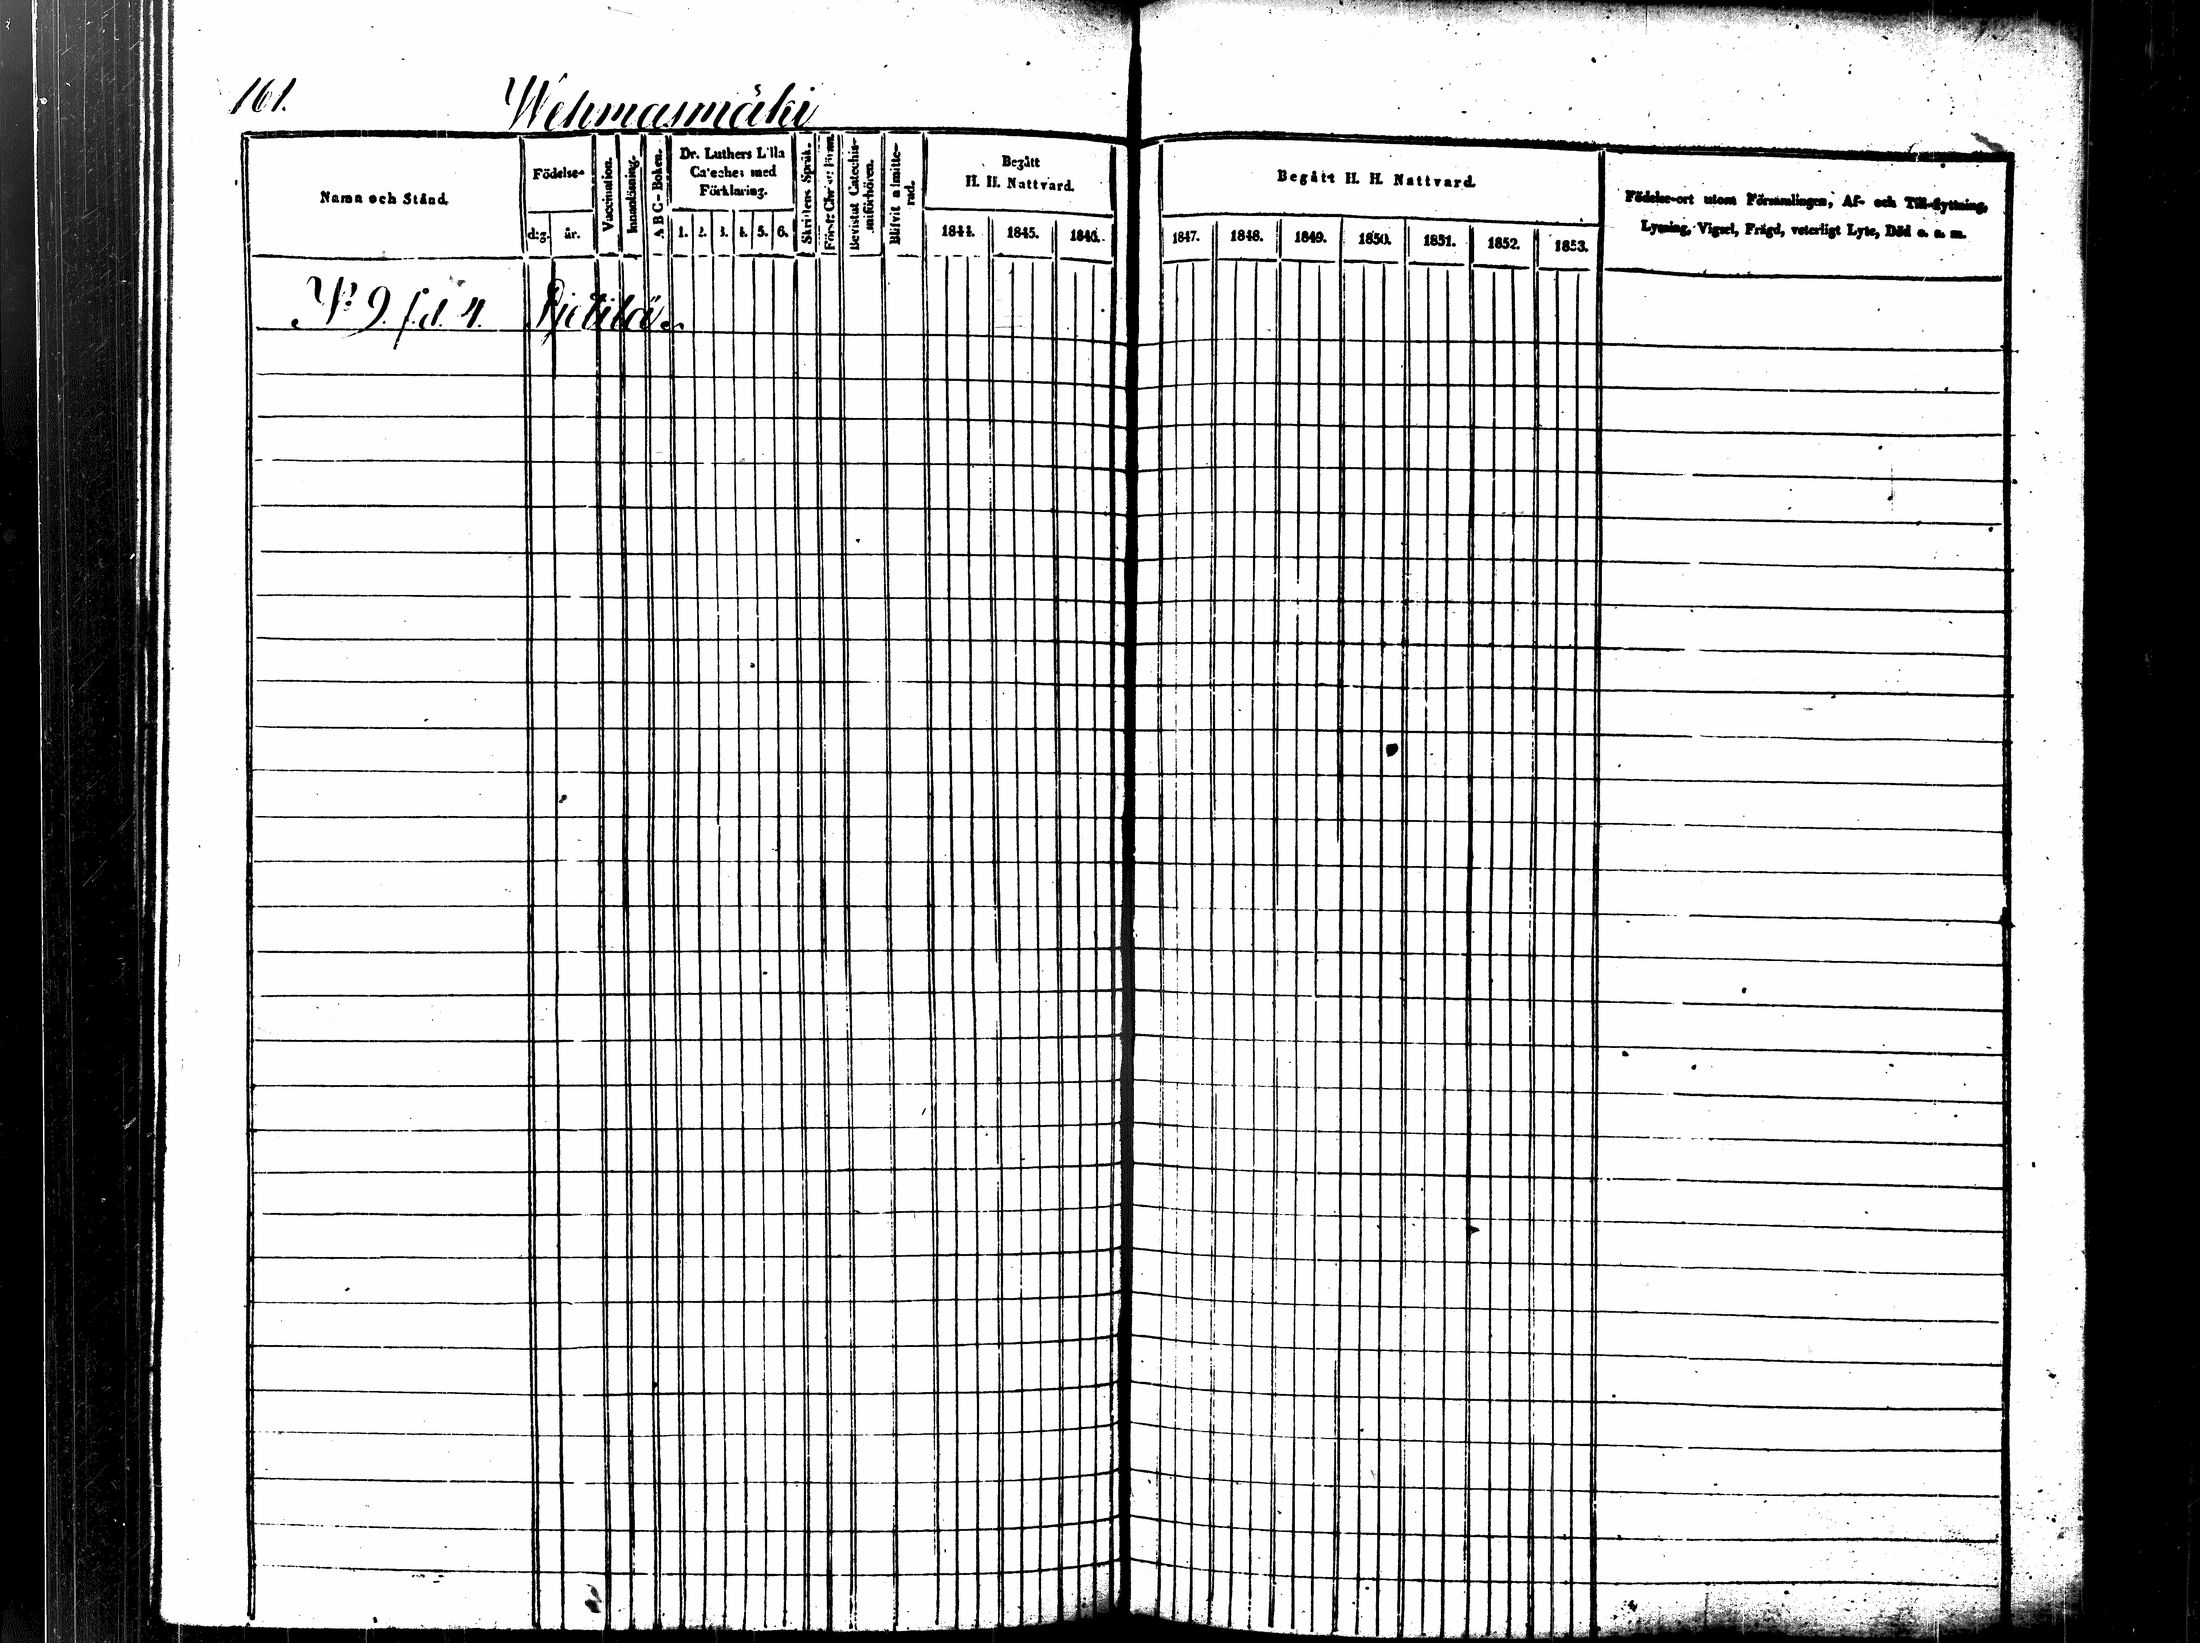 161.
Wehmasmäki
Namn och Stånd.
Födelse-
dag. år.
Vaccination.
Innanläsning.
A B C-Boken.
Dr. Luthers Lilla
Cateches med
Förklaring.
1. 2. 3. 4. 5. 6.
Skriftens Språk.
Bevistat Catechis-
miförhören.
Blifvit admitte-
rad.
Begått
H. H. Nattvard.
1844. 1845. 1846.
Begått H. H. Nattvard.
1847. 1848. 1849. 1850. 1851. 1852. 1853.
Födelse-ort utom Församlingen, Af- och Till-flyttning,
Lysning, Vigsel, Frägd, veterligt Lyte, Död o. s. m.
No 9. f.d. 4. Pjetilä.